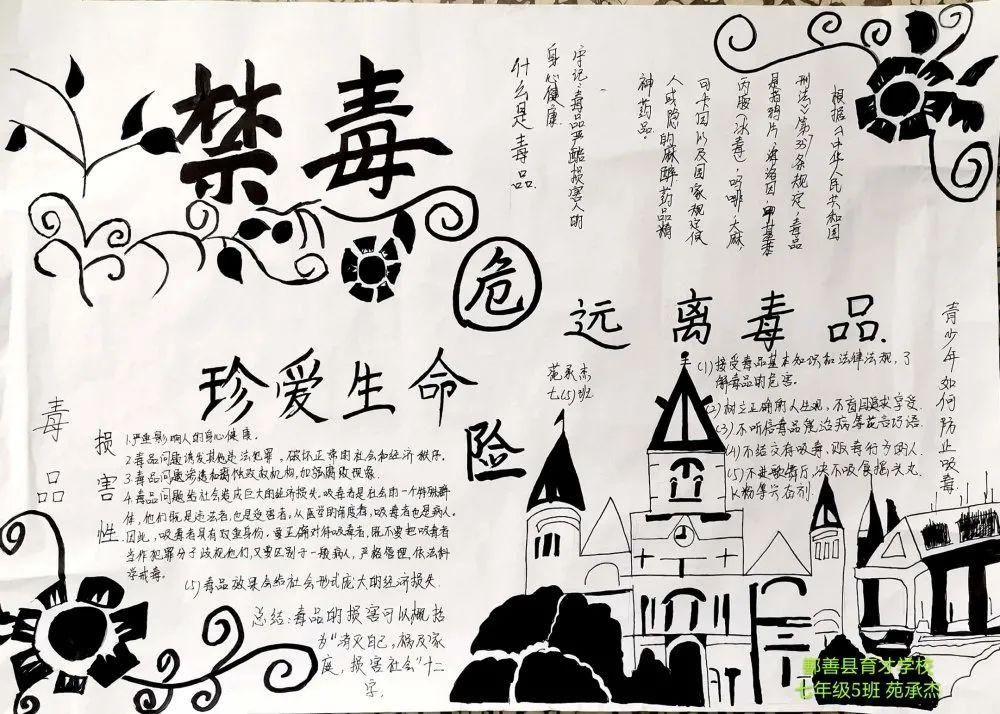 禁毒
珍爱生命
远离毒品.
危
险
什么是毒品.
根据《中华人民共和国
刑法》第357条规定,毒品
是指鸦片,海洛因,甲基苯
丙胺(冰毒),吗啡,大麻
可卡因以及国家规定使
人成瘾的麻醉药品精
神药品.
牢记:毒品严酷损害人的
身心健康
苑承杰
七(5)班
毒品
损害性
1.严重影响人的身心健康.
2毒品问题诱发其他违法犯罪,破坏正常的社会和经济秩序.
3毒品问题渗透和腐蚀政权机构,加剧腐败现象.
4毒品问题给社会造成巨大的经济损失.吸毒者是社会的一个特殊群
体,他们既是违法者,也是受害者,从医学的角度看,吸毒者也是病人。
因此,吸毒者具有双重身份,要正确对待吸毒者,既不要把吸毒者
当作犯罪分子歧视他们,又要区别于一般病人,严格管理,依法科
学戒毒。
(5)毒品效果会给社会形式庞大的经济损失.
总结:毒品的损害可以概括
为"消灭自己,祸及家
庭,损害社会"十二
字.
青少年如何防止吸毒
(1)接受毒品基本知识和法律法规,了
解毒品的危害.
(2)树立正确的人生观,不盲目追求享受.
(3)不听信毒品能治病等花言巧语.
(4)不结交有吸毒、贩毒行为的人.
(5)不进歌舞厅,决不吸食摇头丸
K粉等兴奋剂.
鄯善县育才学校
七年级5班 苑承杰